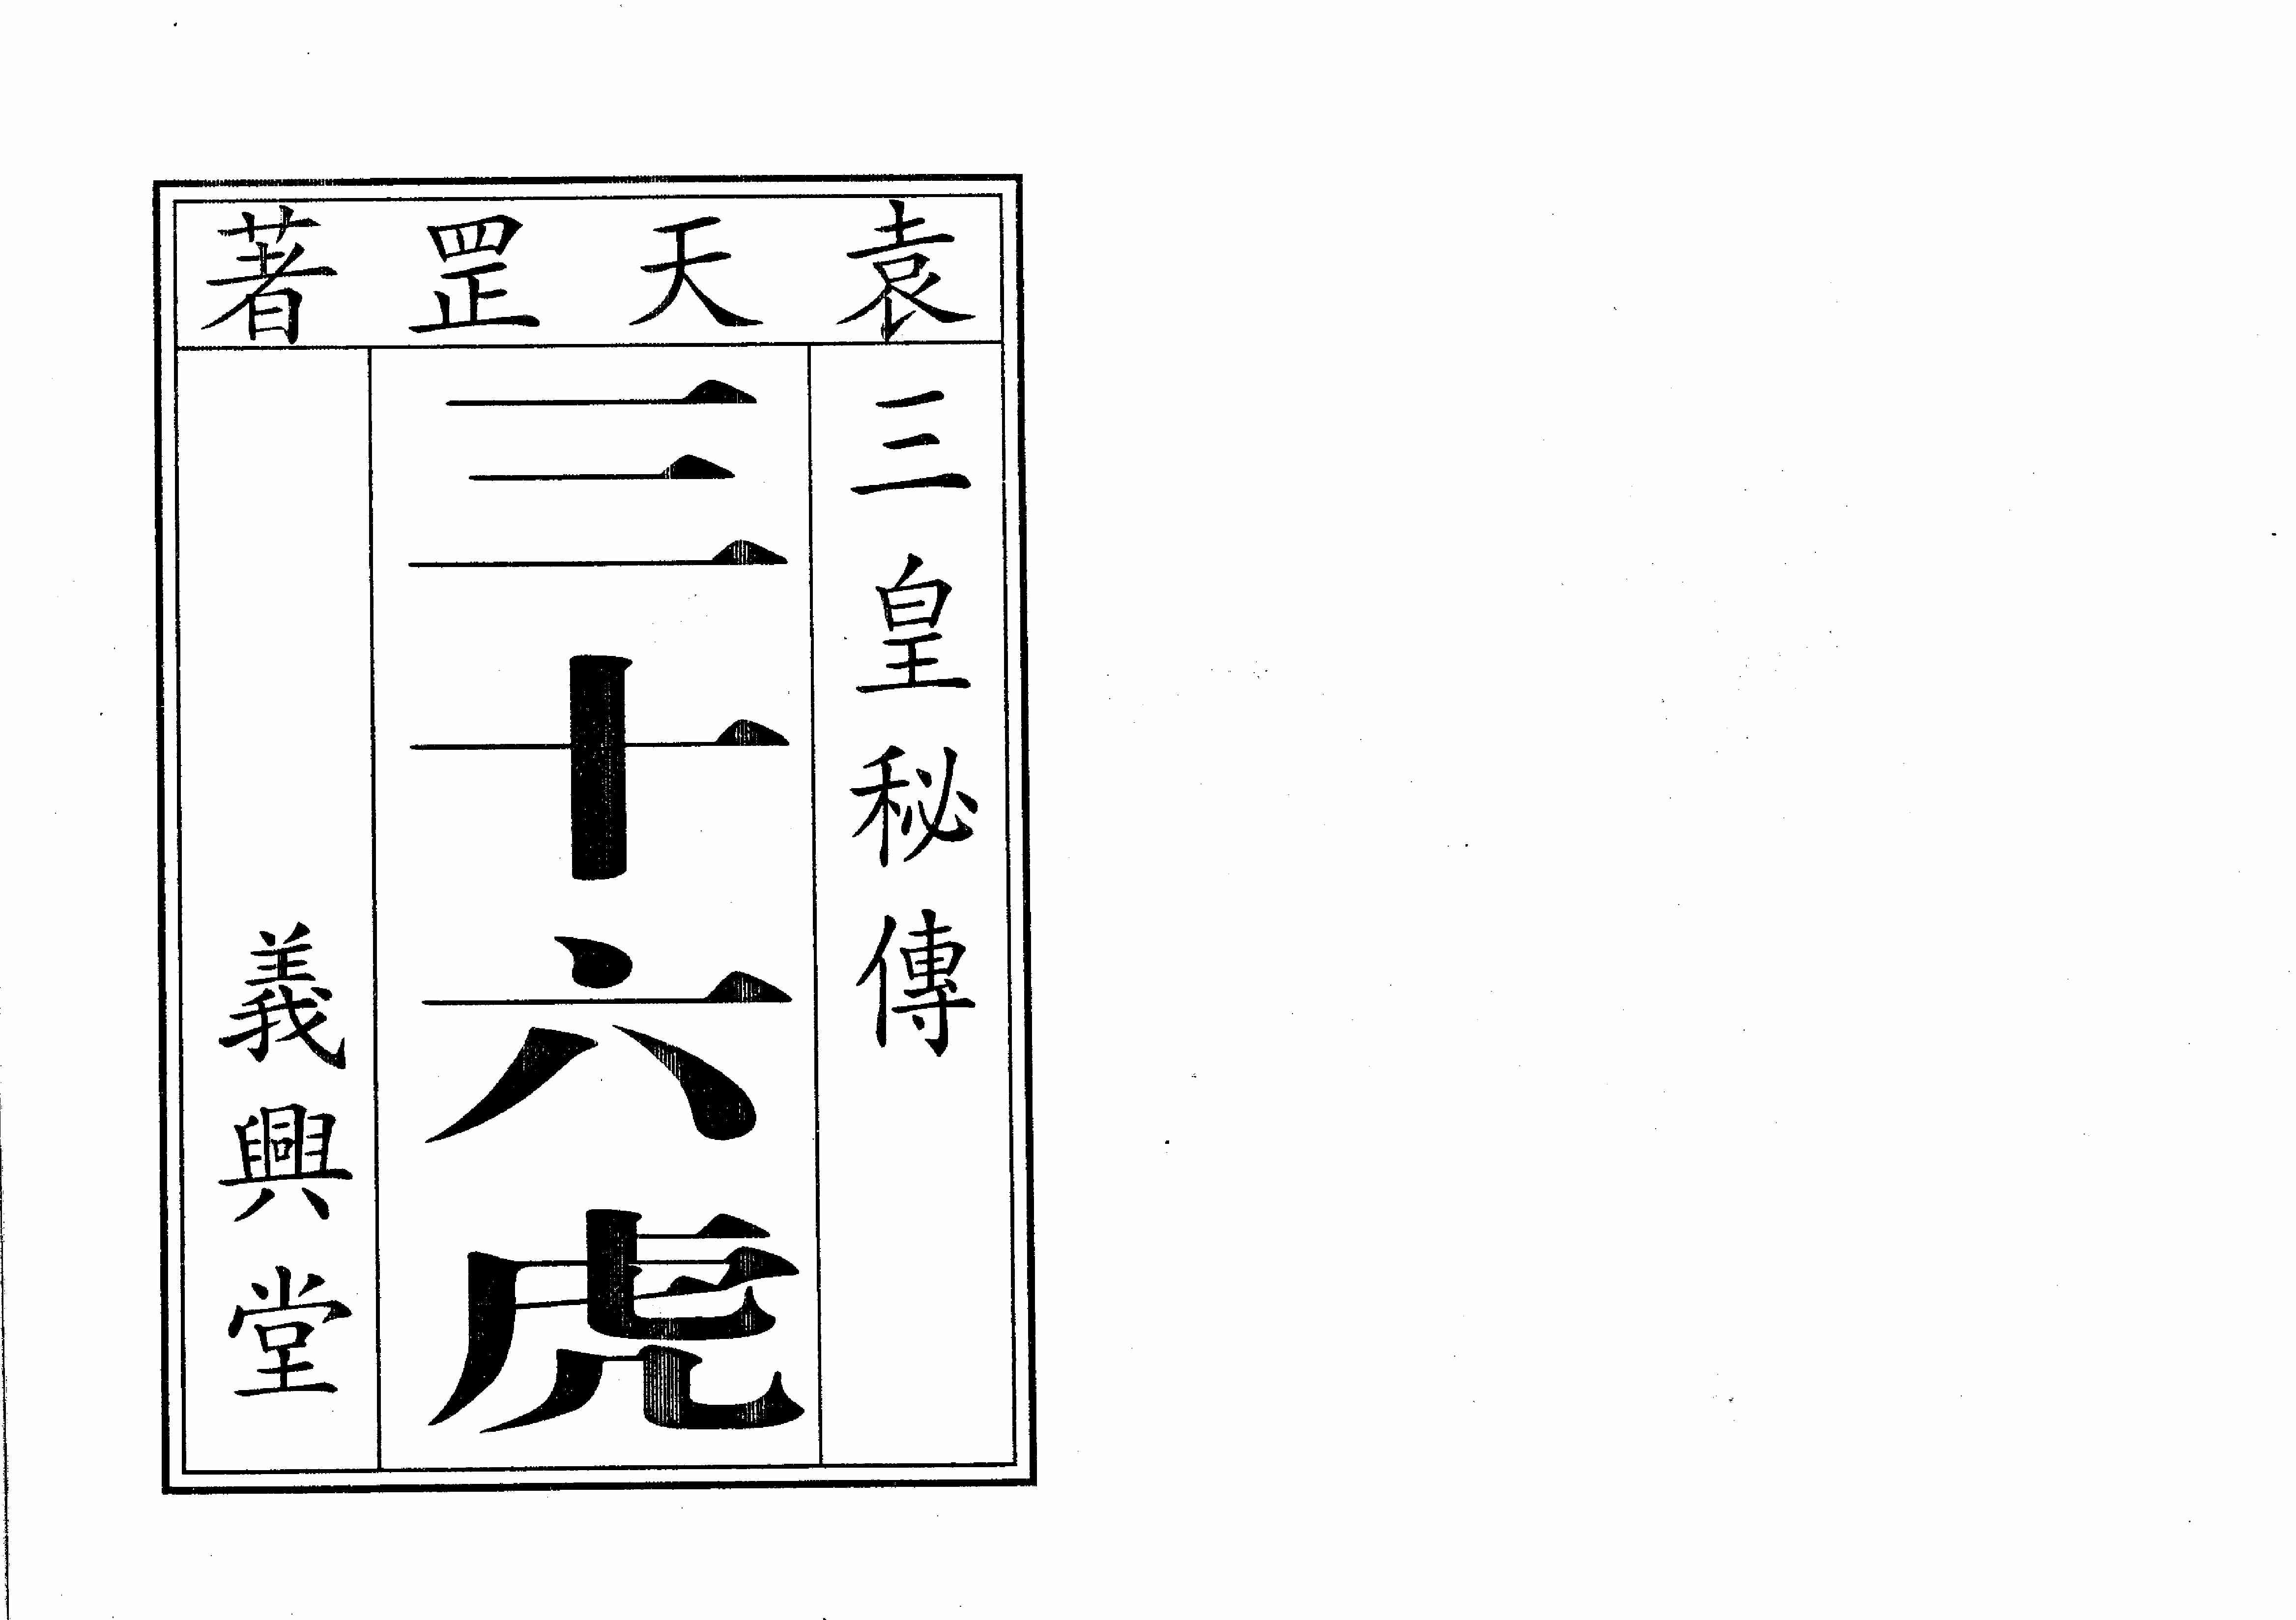 袁天罡著
三皇秘傳
三十六虎
義興堂